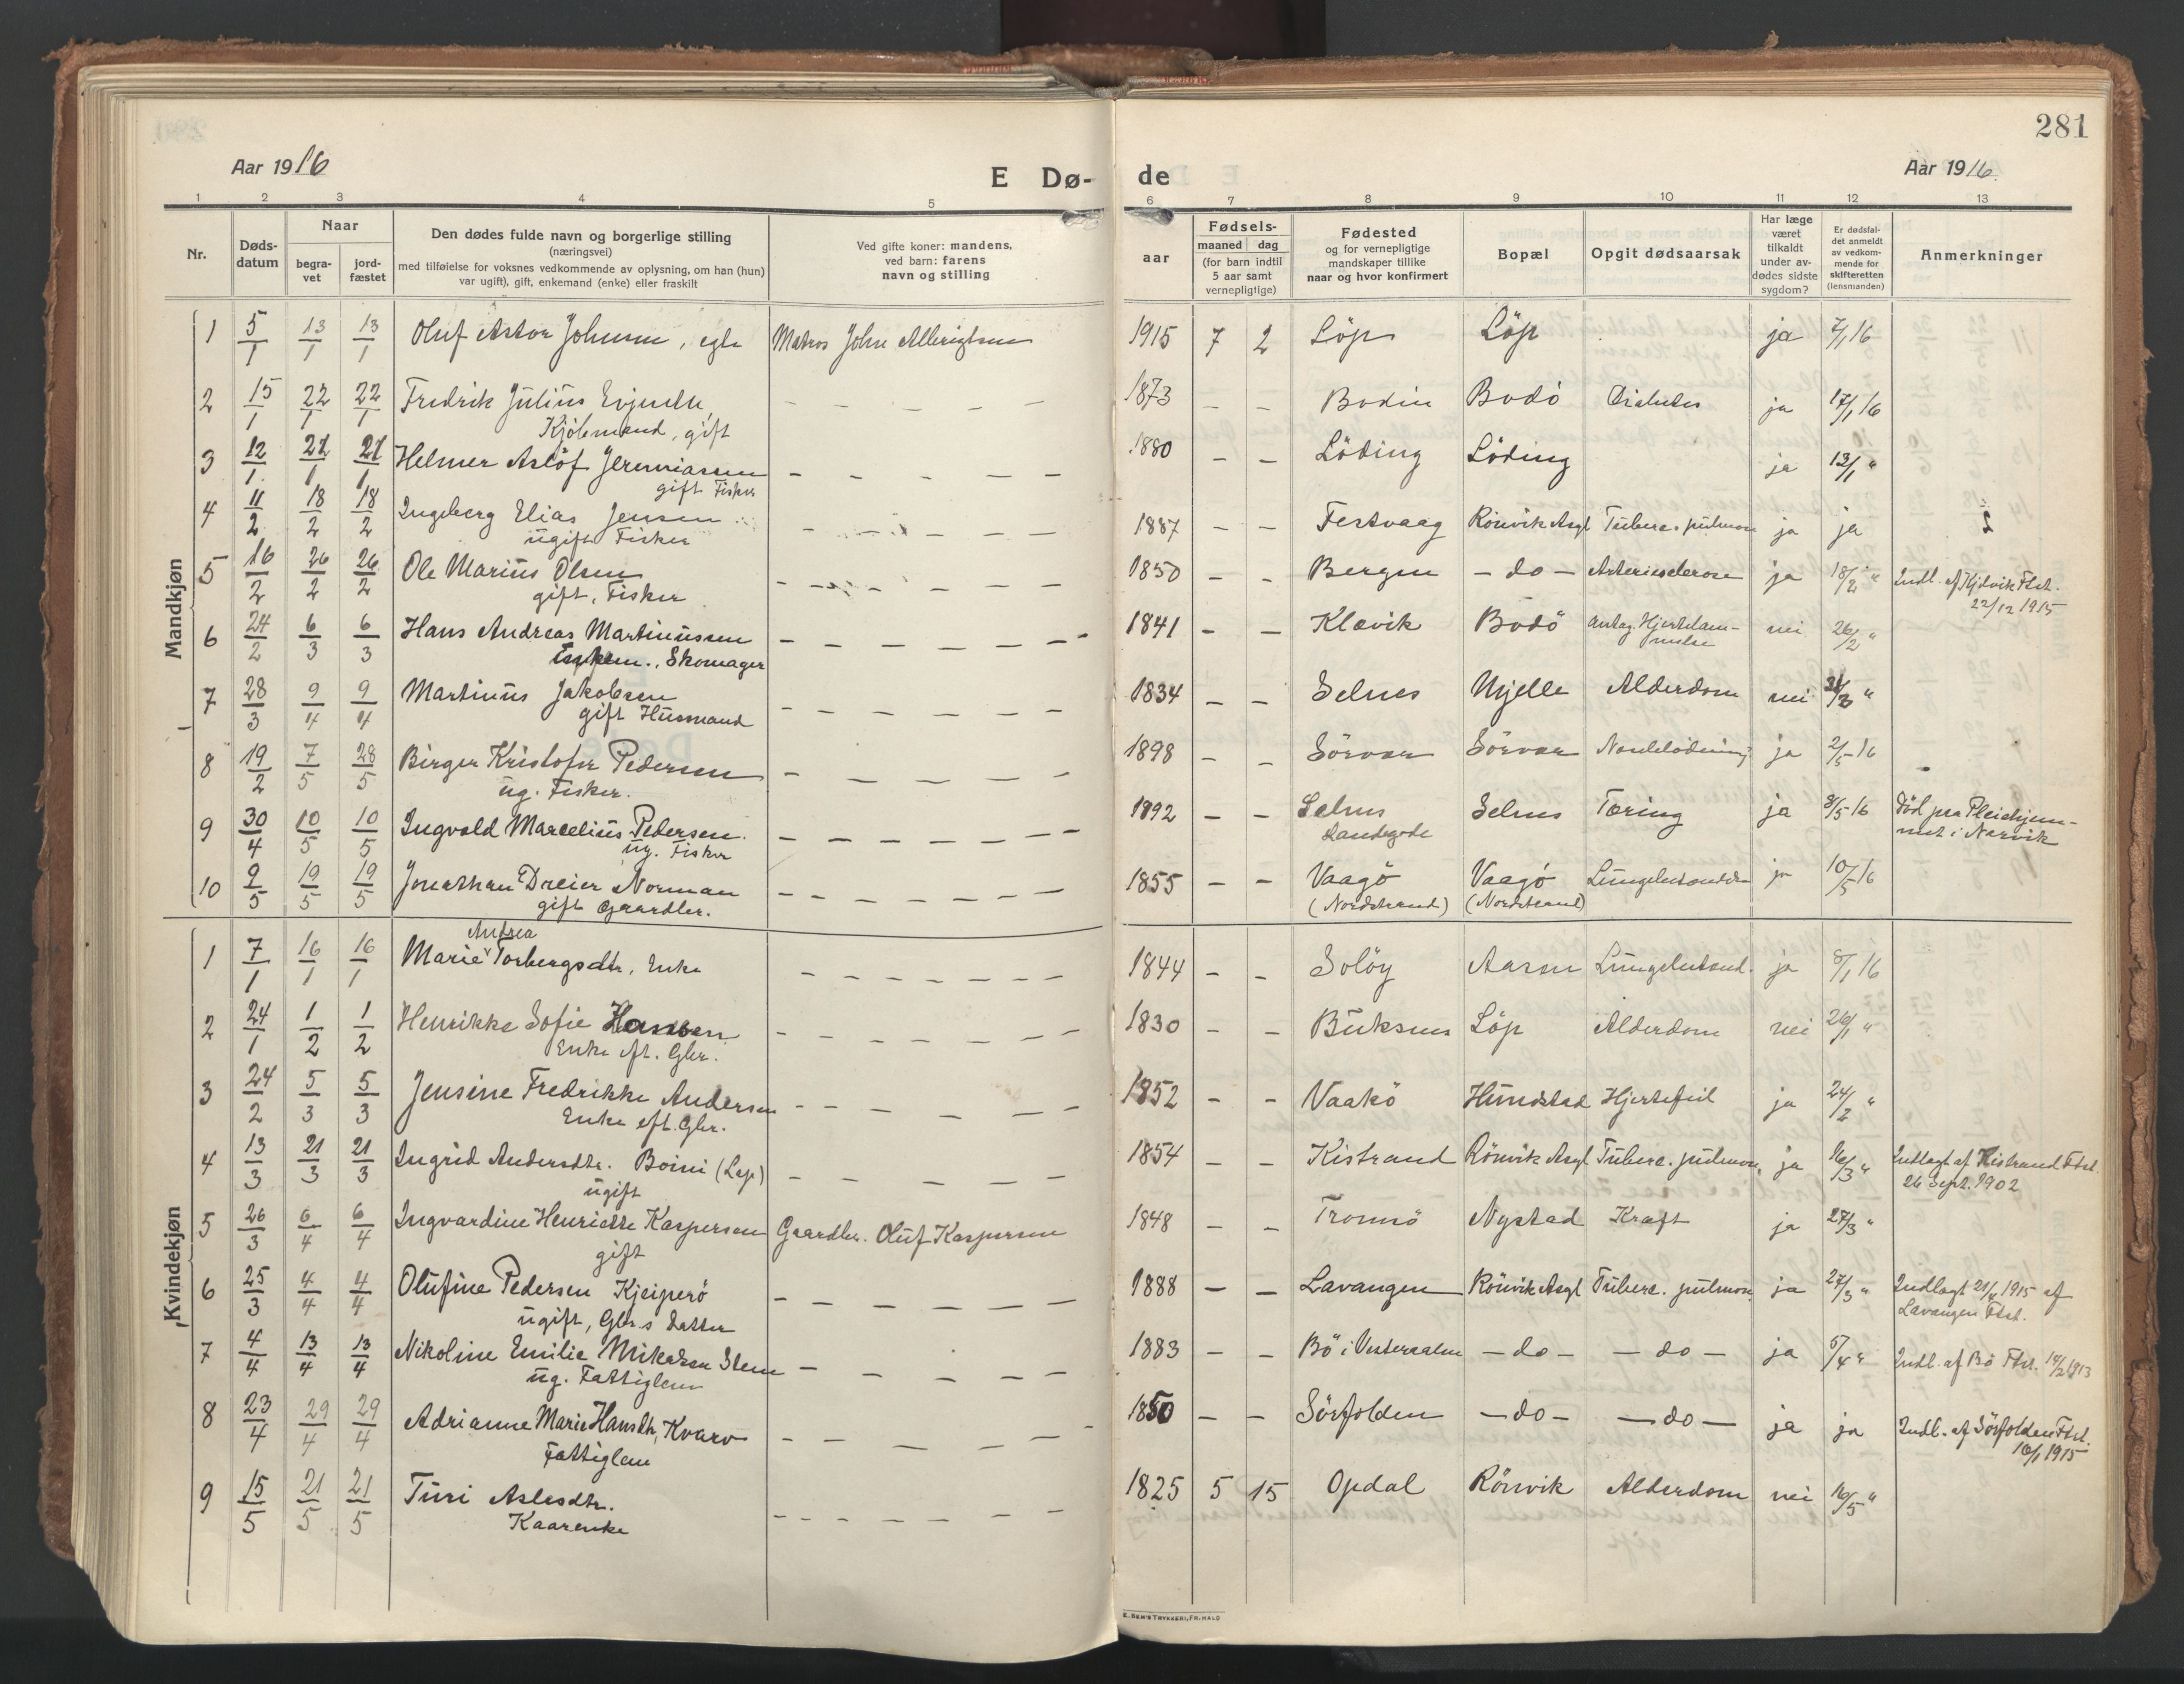 281
Aar 1916
E Dø-
de
Aar 1916.
1 2 3 4 5 6 7 8 9 10 11 12 13
Nr.
Døds-
datum
Naar
begra-
vet
jord-
fæstet
Den dødes fulde navn og borgerlige stilling
(næringsvei)
med tilføielse for voksnes vedkommende av oplysning, om han (hun)
var ugift), gift, enkemand (enke) eller fraskilt
Ved gifte koner: mandens,
ved barn: farens
navn og stilling
aar
Fødsels-
maaned dag
(for barn indtil
5 aar samt
vernepligtige)
Fødested
og for vernepligtige
mandskaper tillike
naar og hvor konfirmert
Bopæl
Opgit dødsaarsak
Har læge
været
tilkaldt
under av-
dødes sidste
sygdom?
Er dødsfal-
det anmeldt
av vedkom-
mende for
skifteretten
(lensmanden)
Anmerkninger
Mandkjøn
1 5/1 13/1 13/1 Oluf Astor Johnsen, egte Matros John 1915 7 2 Löp Löp ja 7/1 16
2 15/1 22/1 22/1 Fredrik Julius Evjenth, – – – – – 1873 – – Bodin Bodö Diabetes ja 17/1 16
Kjöbmand, gift
3 12/1 21/1 21/1 Helmer Aslöf Jeremiassen – – – – – 1880 – – Löding Löding ja 13/1 "
gift Fisker
4 11/2 18/2 18/2 Ingeberg Elias Jensen – – – – – 1887 – – Festvaag Rönvik Asyl Tuberc. pulmon ja ja
ugift Fisker
5 16/2 26/2 26/2 Ole Marius Olsen – – – – – 1850 – – Bergen – do – Arteriosclerose ja 18/2 " Indl. af Kjelvik Ftst.
gift, Fisker
22/12 1915
6 24/2 6/3 6/3 Hans Andreas Martinussen – – – – – – 1841 – – Klævik Bodö antag. Hjertelam- nei 26/2 "
Enkem., Skomager
melse
7 28/3 9/4 9/4 Martinus Jakobsen – – – – – – 1834 – – Selnes Mjelle Alderdom nei 31/3 "
gift Husmand
8 19/2 7/5 28/5 Birger Kristofer Pedersen – – – – – 1898 – – Sörvær Sörvær ja 2/5 16
ug. Fisker.
9 30/4 10/5 10/5 Ingvald Marcelius Pedersen. – – – – – – 1892 – – Selnes Selnes Tæring ja 8/5 16 Död paa Pleiehjem-
ug. Fisker
Landegode
met i Narvik
10 9/5 19/5 19/5 Jonathan Dreier Norman – – – – – – 1855 – – Vaagö Vaagö Lungebetændelse ja 10/5 16
gift Gaardbr.
(Nordstrand) (Nordstrand)
Kvindekjøn
Andrea
1 7/1 16/1 16/1 Marie Torbergsdtr, Enke – – – – – – 1844 – – Solöy Aasen Lungebetænd. ja 8/1 16
2 24/1 1/2 1/2 Henrikke Sofie Hansen – – – – – – 1830 – – Buksnes Löp Alderdom nei 26/1 "
Enke eft. Gbr.
3 24/2 5/3 5/3 Jensine Fredrikke Andersen – – – – – 1852 – – Vaakö Hundstad Hjertefeil ja 24/2 "
Enke eft. Gbr.
4 13/3 21/3 21/3 Ingrid Andersdtr. Boini (Lap) – – – – – 1854 – – Kistrand Rönvik Asyl Tuberc. pulmon. ja 16/3 " Indlagt af Kistrand Ftst.
ugift
26 Sept. 1902
5 26/3 6/4 6/4 Ingvardine Henriette Kaspersen Gaardbr. Oluf Kaspersen 1848 – – Tromsö Nystad Kræft ja 27/3 "
gift
6 25/3 4/4 4/4 Olufine Pedersen Kjeiperö – – – – – – 1888 – – Lavangen Rönvik Asyl Tuberc. pulmon. ja 27/3 " Indlagt 21/4 1915 af
ugift, Gbr.s datter
Lavangen Ftst.
7 4/4 13/4 13/4 Nikoline Emilie Mikalsen Steen – – – – – 1883 – – Bö i Vesteraalen – do – – do – ja 5/4 " Indl. af Bö Ftst. 14/2 1913
ug. Fattiglem
8 23/4 29/4 29/4 Adrianne Marie Hansdtr, Kvarv – – – – – – 1850 – – Sörfolden – do – – do – ja ja Indl. af Sörfolden Ftst.
Fattiglem
16/1 1915
9 15/5 21/5 21/5 Turi Aslesdtr. – – – – – – 1825 5 15 Opdal Rönvik Alderdom nei 16/5 "
Kaarenke
E. SEM'S TRYKKERI, FR.HALD